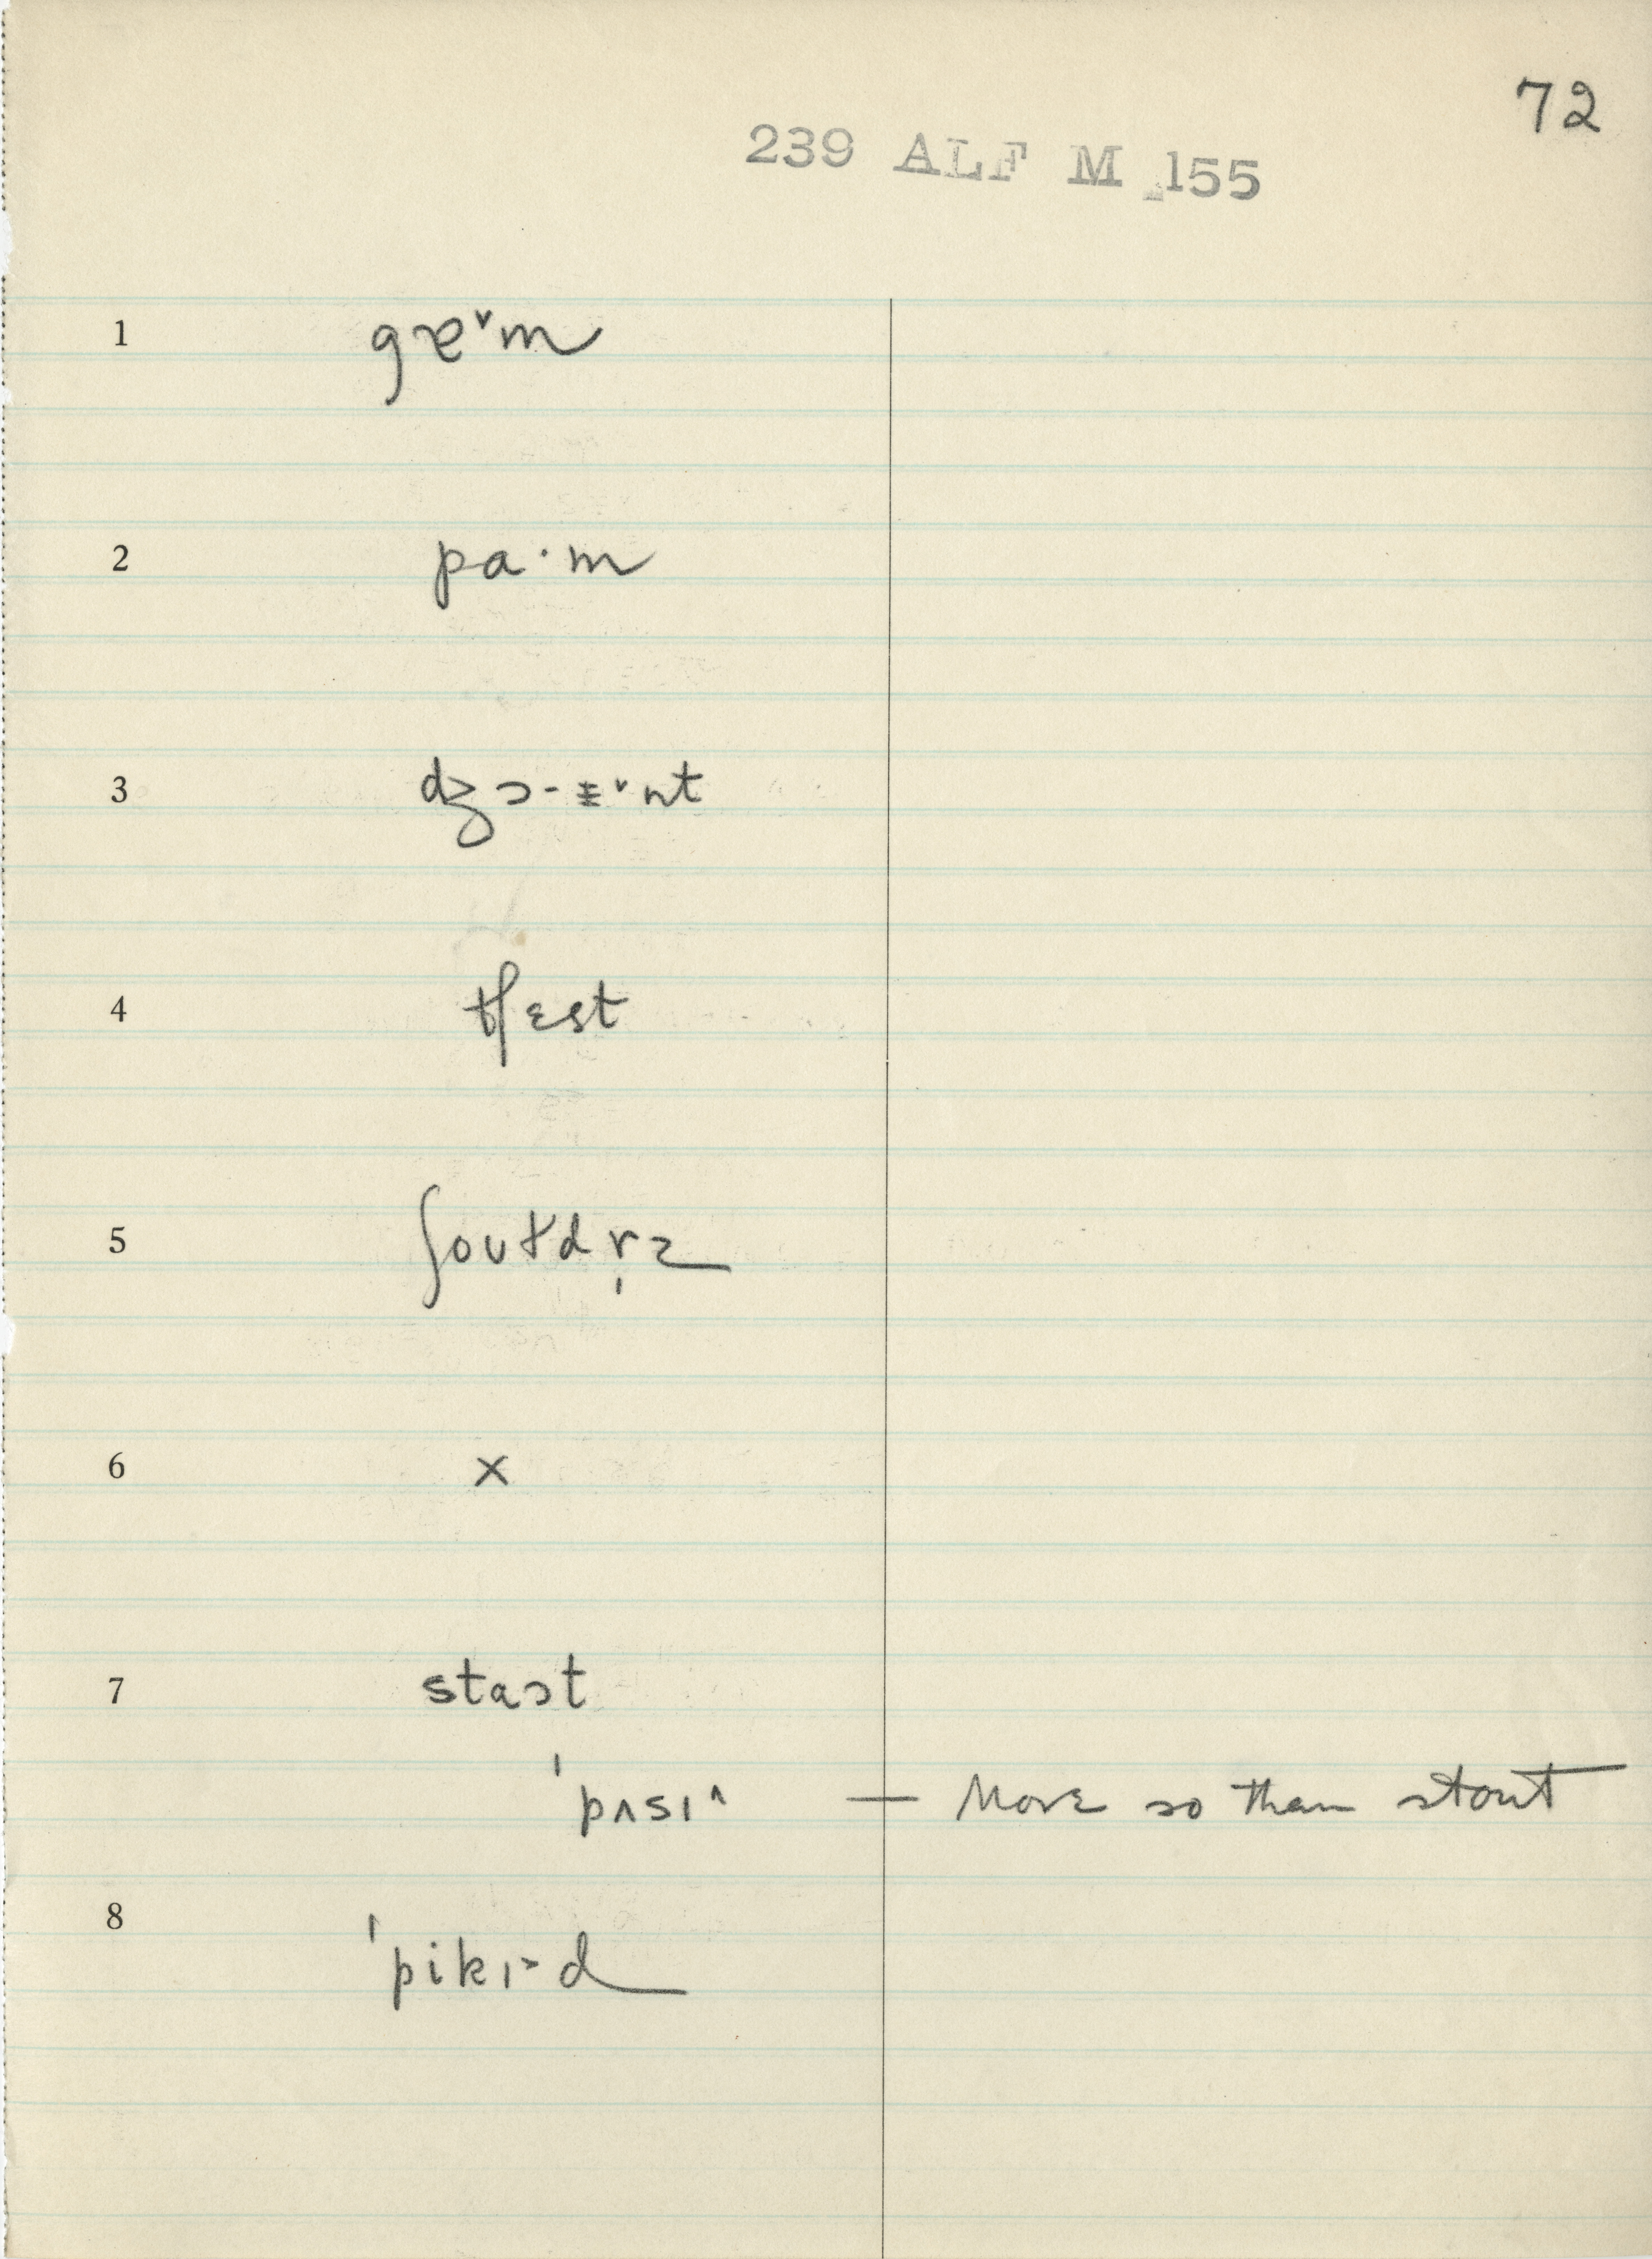 72
239 ALF M 155
1 gɐ˅m
2 pa·m
3 dʒɔ-ᵻ˅nt
4 tʃɛst
5 ʃoʊtdr̩z
6 ×
7 staɔt
ˈpʌsɪ^ — More so than stout
8 ˈpikɪ>d